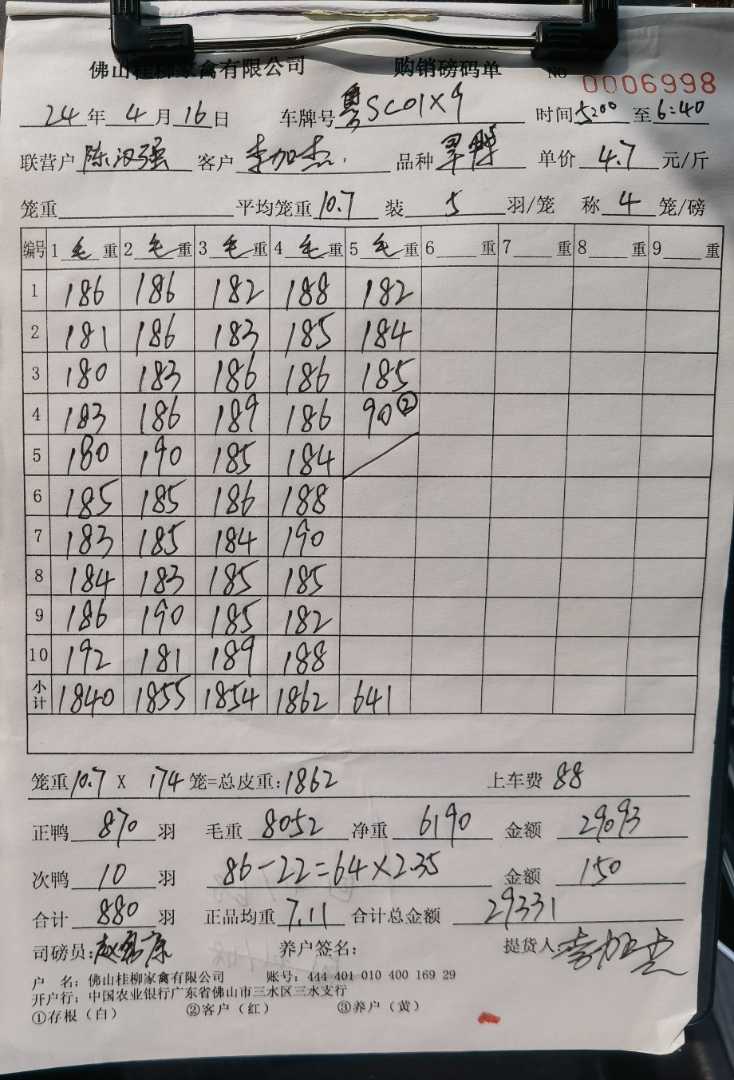 佛山桂柳家禽有限公司 购销磅码单 NO 0006998
24年4月16日 车牌号粤SC01X9 时间5200至6:40
联营户陈汉强 客户李加杰 品种 单价4.7元/斤
笼重 平均笼重10.7 装5羽/笼 称4笼/磅
编号 1毛重 2毛重 3毛重 4毛重 5毛重 6重 7重 8重 9重
1 186 186 182 188 182
2 181 186 183 185 184
3 180 183 186 186 185
4 183 186 189 186 90②
5 180 190 185 184
6 185 185 186 188
7 183 185 184 190
8 184 183 185 185
9 186 190 185 182
10 192 181 189 188
小计 1840 1855 1854 1862 641
笼重10.7X174笼=总皮重:1862 上车费88
正鸭870羽 毛重8052 净重6190 金额29093
次鸭10羽 86-22=64×2.35 金额150
合计880羽 正品均重7.11 合计总金额29331
司磅员: 养户签名: 提货人李加杰
户 名:佛山桂柳家禽有限公司 账号:444 401 010 400 169 29
开户行:中国农业银行广东省佛山市三水区三水支行
①存根(白) ②客户(红) ③养户(黄)